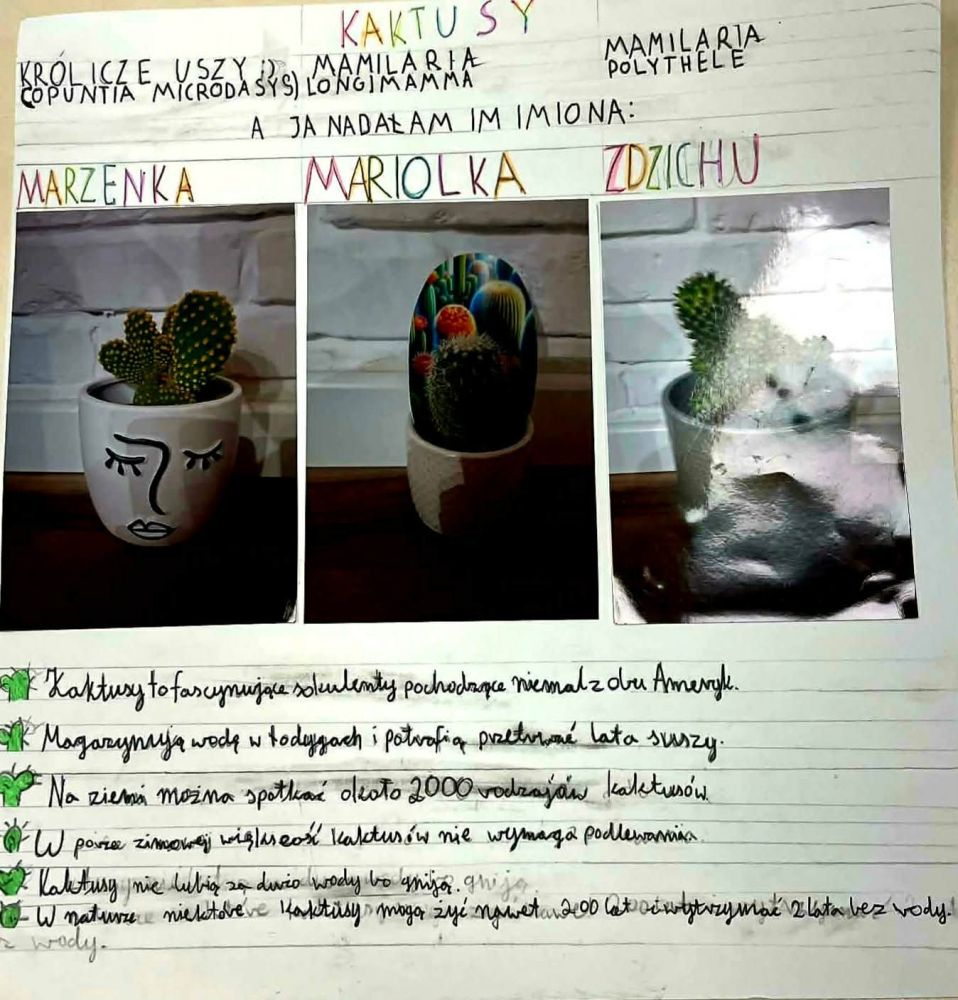 KAKTUSY
KRÓLICZE USZY :) MAMILARIA MAMILARIA
(OPUNTIA MICRODASYS) LONGIMAMMA POLYTHELE
A JA NADAŁAM IM IMIONA:
MARZENKA MARIOLKA ZDZICHU
Kaktusy to fascynujące sukulenty pochodzące niemal z obu Ameryk.
Magazynują wodę w łodygach i potrafią przetrwać lata suszy.
Na ziemi można spotkać około 2000 rodzajów kaktusów.
W porze zimowej większość kaktusów nie wymaga podlewania.
Kaktusy nie lubią za dużo wody bo gniją.
W naturze niektóre kaktusy mogą żyć nawet 200 lat i wytrzymać 2 lata bez wody.
z wody.